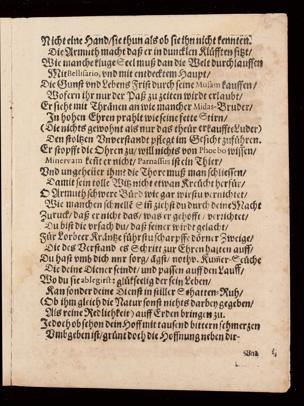 Nicht eine Hand/ sie thun als ob sie ihn nicht kennten.
Die Armuth macht daß er in duncklen Klüfften sitzt/
Wie manche kluge Seel muß dan die Welt durchlauffen
Mit Bellisario, und mit entdecktem Haupt/
Die Gunst und Lebens Frist durch seine Musam kauffen/
Wofern ihr nur der Paß zu zeiten wird erlaubt/
Er sieht mit Thränen an wie mancher Midas-Bruder/
In hohen Ehren prahlt wie seine feite Stirn/
(Die nichts gewohnt als nur das theür erkauffte Luder)
Den stoltzen Unverstandt pflegt im Gesicht zuführen.
Er stopfft die Ohren zu/ wil nichts von Phoebo wissen/
Minervam keñt er nicht/ Parnassus ist ein Thier/
Und ungeheüer ihme die Thore muß man schliessen/
Damit sein tolle Witz nicht etwan Kreücht herfür/
O Armuth schwere Bürd wie gar würst vernichtet/
Wie manchen schnellē Siñ ziehst du durch deine Macht
Zurück/ daß er nicht das/ was er gehofft/ verrichtet/
Du bist die ursach du/ daß seiner wird gelacht/
Für Lorbeer Kräntze führst du scharpffe dörner Zweige/
Die des Verstand es Schritt zur Ehren halten auff/
Du hast umb dich nur sorg/ Angst/ nothw. Kum̃er-Seüche
Die deine Diener seindt/ und passen auff den Lauff/
Wo du sie ablegirst: glückselig der sein Leben/
Kan sonder deine Dienst in stiller Schatten-Ruh/
(Ob ihm gleich die Natur sonst nichts darbey gegeben/
Als reine Redlichkeit) auff Erden bringen zu.
Jedoch ob schon dein Hoff mit tausend bittern schmertzen
Umbgeben ist/ gründt doch die Hoffnung neben dir-